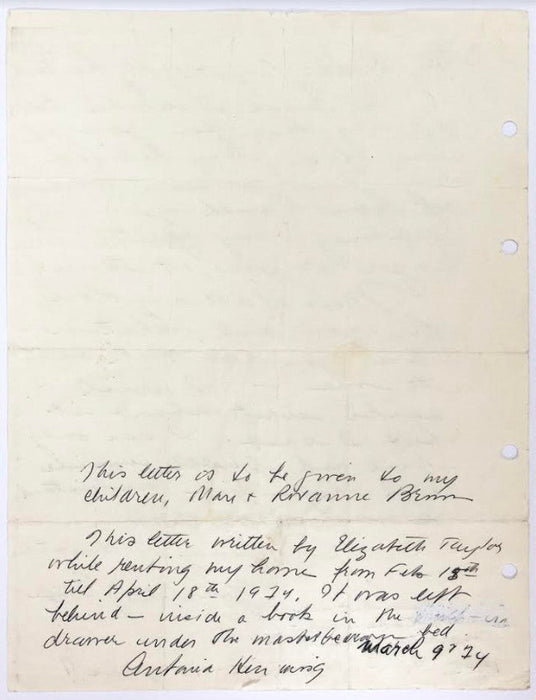 This letter is to be given to my
children, Marc + Roxanne
This letter written by Elizabeth Taylor
while renting my home from Feb 18th
til April 18th 1974. It was left
behind – inside a book in the
drawer under the master bed
March 9 74
Antonia